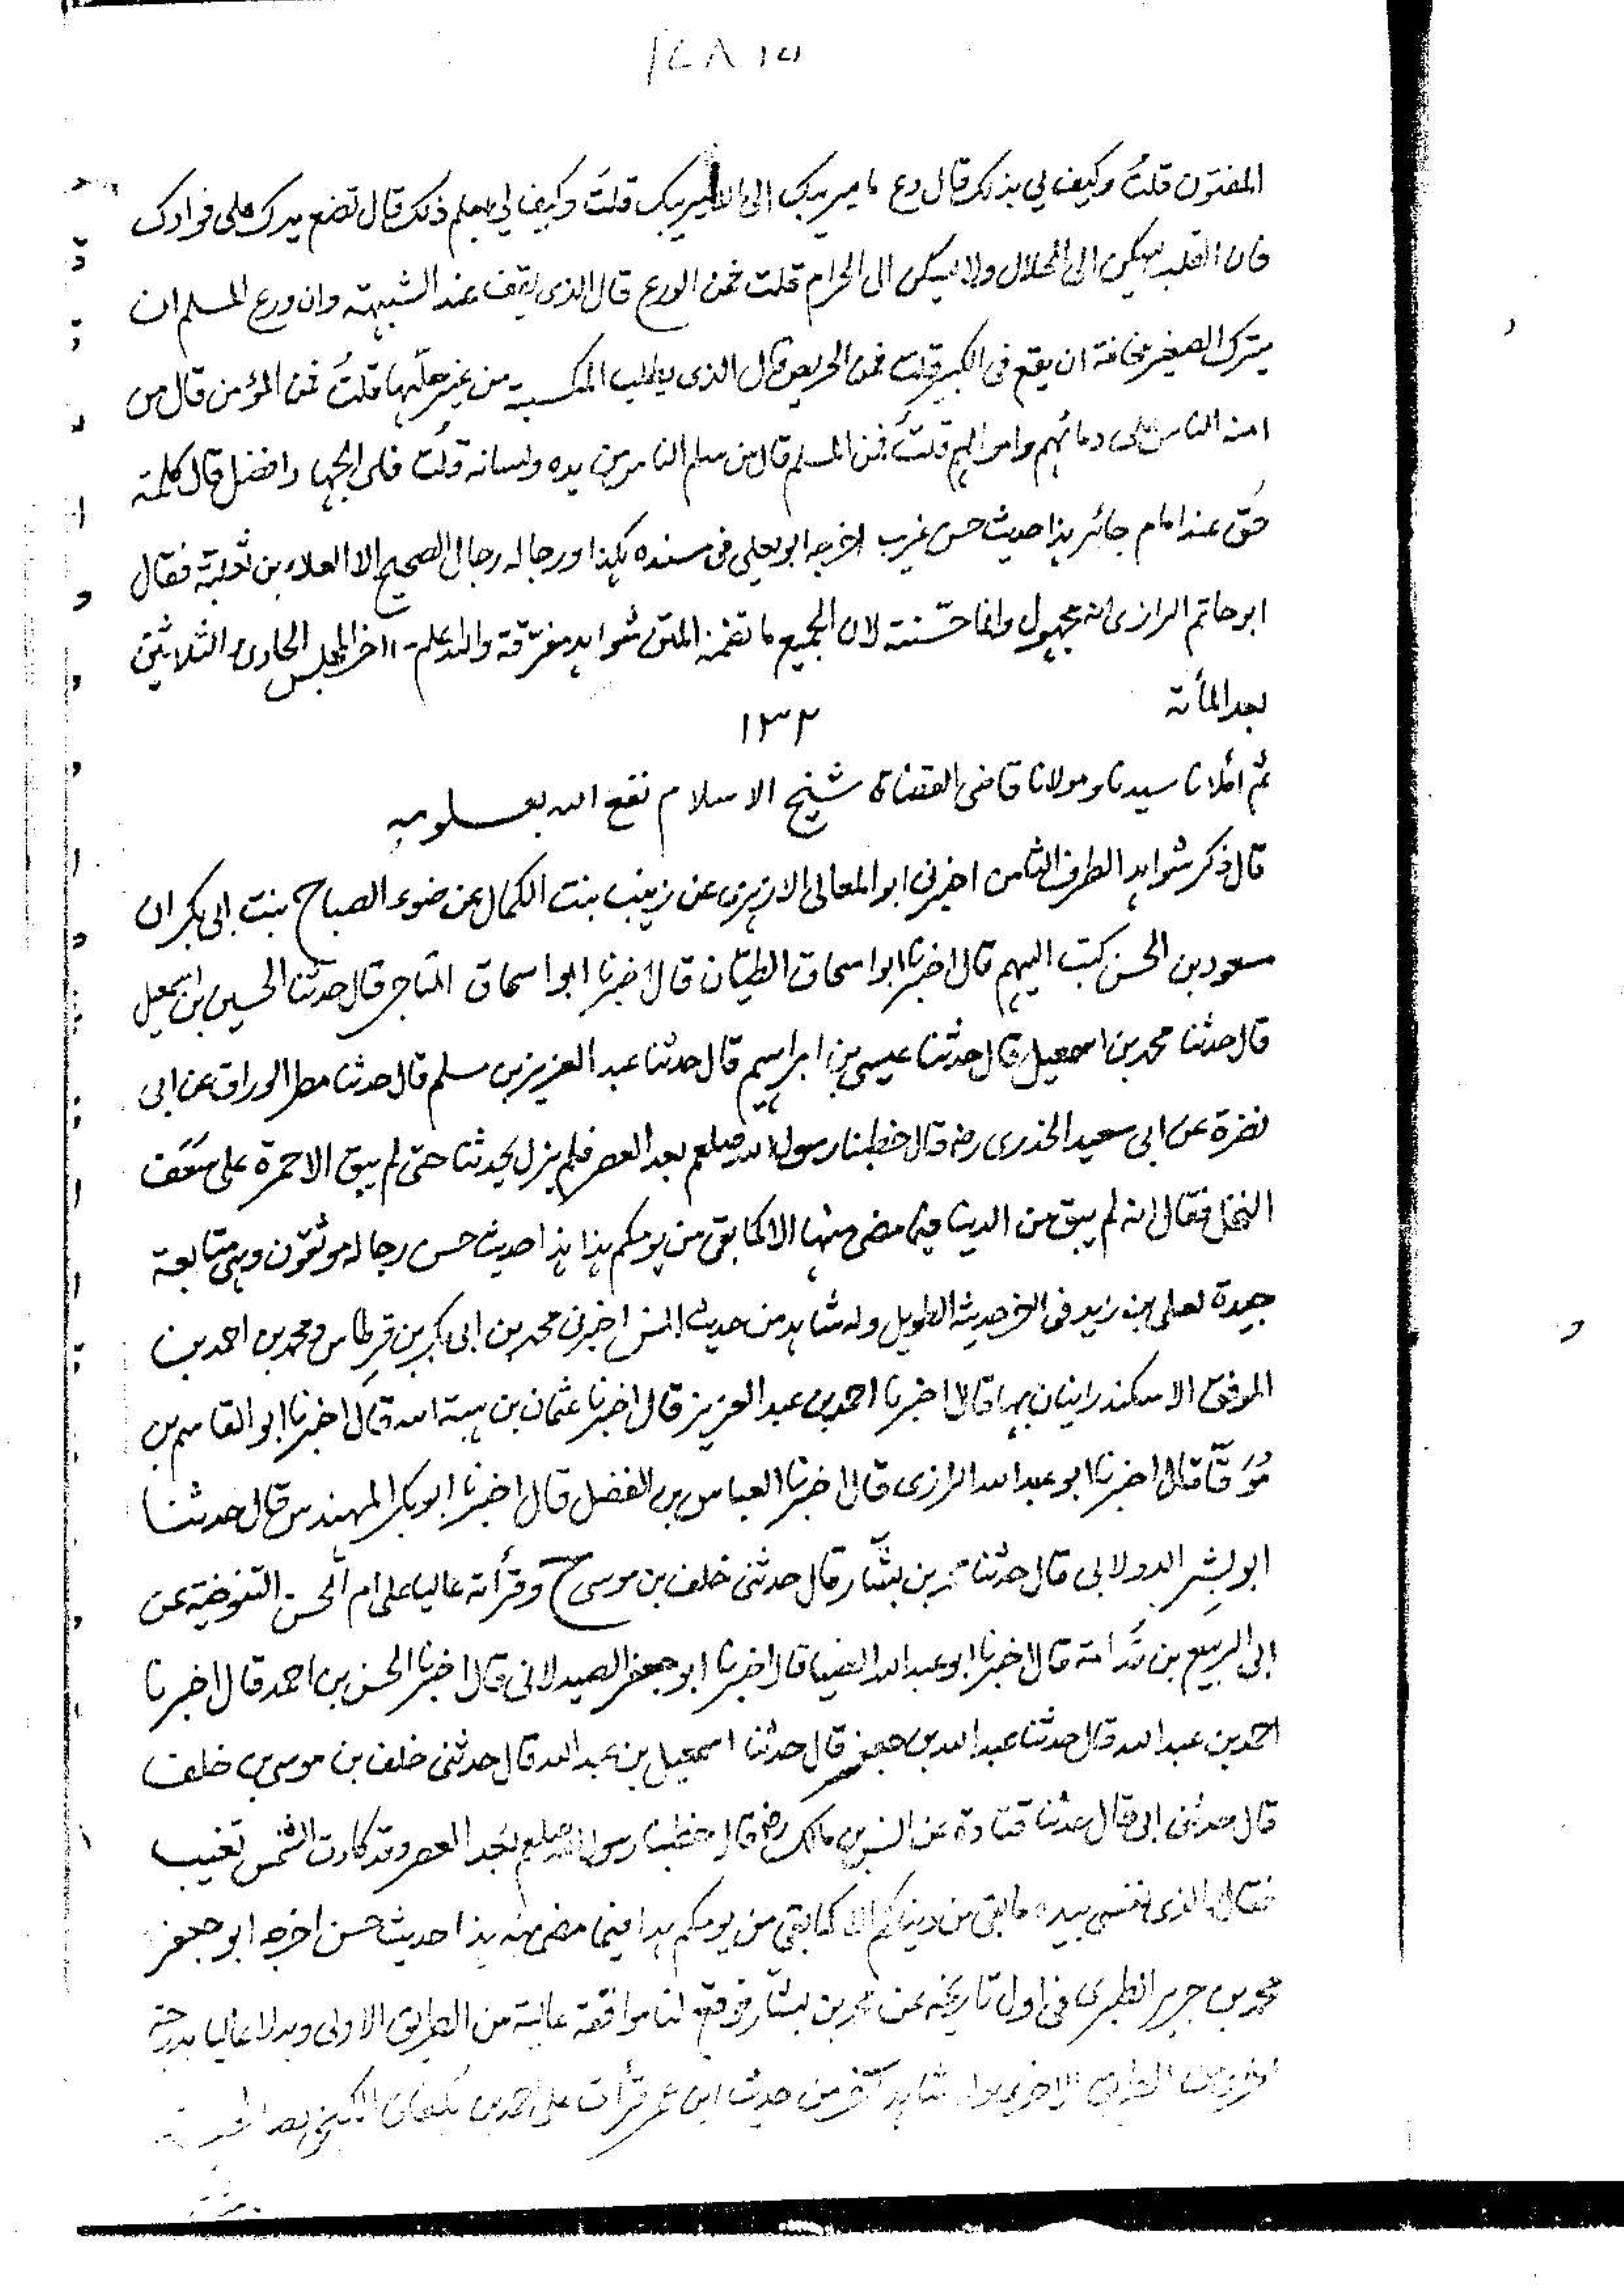 المفتون قلتُ وكيف لي بذلك قال دع ما يريبك الى ما لا يريبك قلتُ وكيف لي بعلم ذلك قال تضع يدك على فوادك
فان القلب يسكن الى الحلال ولا يسكن الى الحرام قلت فمن الورع قال الذى يقف عند الشبهة وان ورع المسلم ان
يترك الصغير مخافة ان يقع فى الكبير قلت فمن الحريص قال الذى يطلب المكسبة من غير حلّها قلتُ فمن المؤمن قال من
امنه الناس على دمائهم واموالهم قلتُ فمن المسلم قال من سلم الناس من يده ولسانه قلت فاى الجهاد افضل قال كلمة
حق عند امام جائر هذا حديث حسن غريب اخرجه ابو يعلى فى مسنده هكذا ورجاله رجال الصحيح الا العلاء بن ثعلبة فقال
ابو حاتم الرازى انه مجهول وانما حسّنته لان لجميع ما تضمنه المتن شواهد مفرّقة والله اعلم - آخر المجلس الحادى والثلاثين
بعد المأة
١٣٢
ثم أملانا سيدنا ومولانا قاضى القضاة شيخ الاسلام نفع الله بعلومه
قال ذكر شواهد الطرف الثامن اخبرنى ابو المعالى الازهرى عن زينب بنت الكمال عن ضوء الصباح بنت ابى بكر ان
مسعود بن الحسن كتب اليهم قال اخبرنا ابو اسحاق الطيّان قال اخبرنا ابو اسحاق التاجر قال حدثنا الحسين بن اسمعيل
قال حدثنا محمد بن اسمعيل قال حدثنا عيسى بن ابراهيم قال حدثنا عبد العزيز بن مسلم قال حدثنا مطر الوراق عن ابى
نضرة عن ابى سعيد الخدرى رض قال خطبنا رسول الله صلعم بعد العصر فلم يزل يحدثنا حتى لم يبق الا حمرة على سَعَف
النخل فقال انه لم يبق من الدنيا فيما مضى منها الا كما بقى من يومكم هذا هذا حديث حسن رجاله موثقون وهى متابعة
جيدة لعلى بن زيد فى آخر حديثه الطويل وله شاهد من حديث انس اخبرنى محمد بن ابى بكر بن قرطاس ومحمد بن احمد بن
الموفق الاسكندرانيان بها قالا اخبرنا احمد بن عبد العزيز قال اخبرنا عثمان بن هبة الله قال اخبرنا ابو القاسم بن
مُوَقّا قال اخبرنا ابو عبد الله الرازى قال اخبرنا العباس بن الفضل قال اخبرنا ابو بكر المهندس قال حدثنا
ابو بشر الدولابى قال حدثنا بن بشّار قال حدثنى خلف بن موسى ح وقرأته عاليا على ام الحسن التنوخية عن
ابى الربيع بن قدامة قال اخبرنا ابو عبد الله الضيا قال اخبرنا ابو جعفر الصيدلانى قال اخبرنا الحسن بن احمد قال اخبرنا
احمد بن عبد الله قال حدثنا عبد الله بن جعفر قال حدثنا اسمعيل بن عبد الله قال حدثنى خلف بن موسى بن خلف
قال حدثنى ابى قال حدثنا قتادة عن انس بن مالك رض قال خطبنا رسول الله صلعم بعد العصر وقد كادت الشمس تغيب
فقال والذى نفسى بيده ما بقى من دنياكم الا كما بقى من يومكم هذا فيما مضى منه هذا حديث حسن اخرجه ابو جعفر
محمد بن جرير الطبرى فى اول تاريخه عن محمد بن بشار فوقع لنا موافقة عالية من الطريق الاولى وبدلا عاليا بدرجة
الطريق الاخرى وله شاهد آخر من حديث ابن عمر قرأت على احمد بن